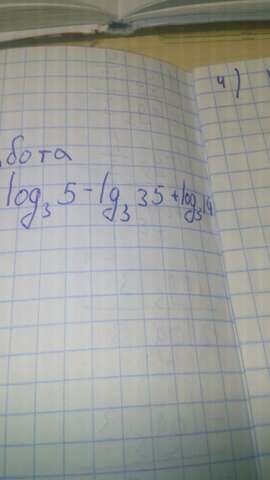 4)
бота
log₃ 5 - lg₃ 35 + log₃